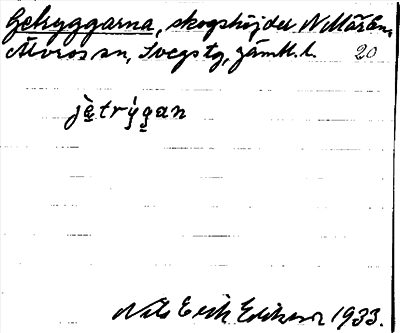 Getryggarna, skogshöjder N Mårbn,
Älvros sn, Svegs tg, Jämtl. l. 20
jètrýgan
Nils Erik Eriksson 1933.